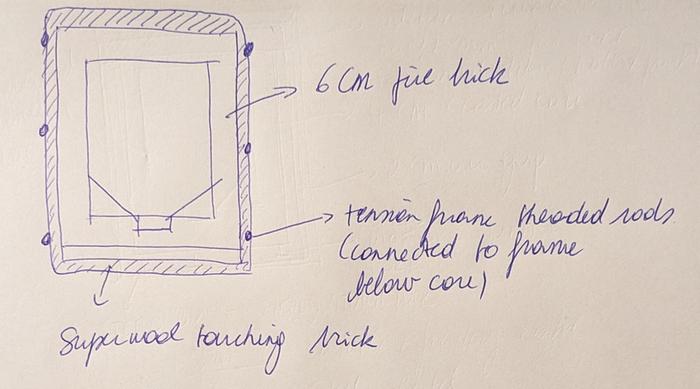 6cm fire brick
tension frame threaded rods
(connected to frame
below core)
Superwool touching brick